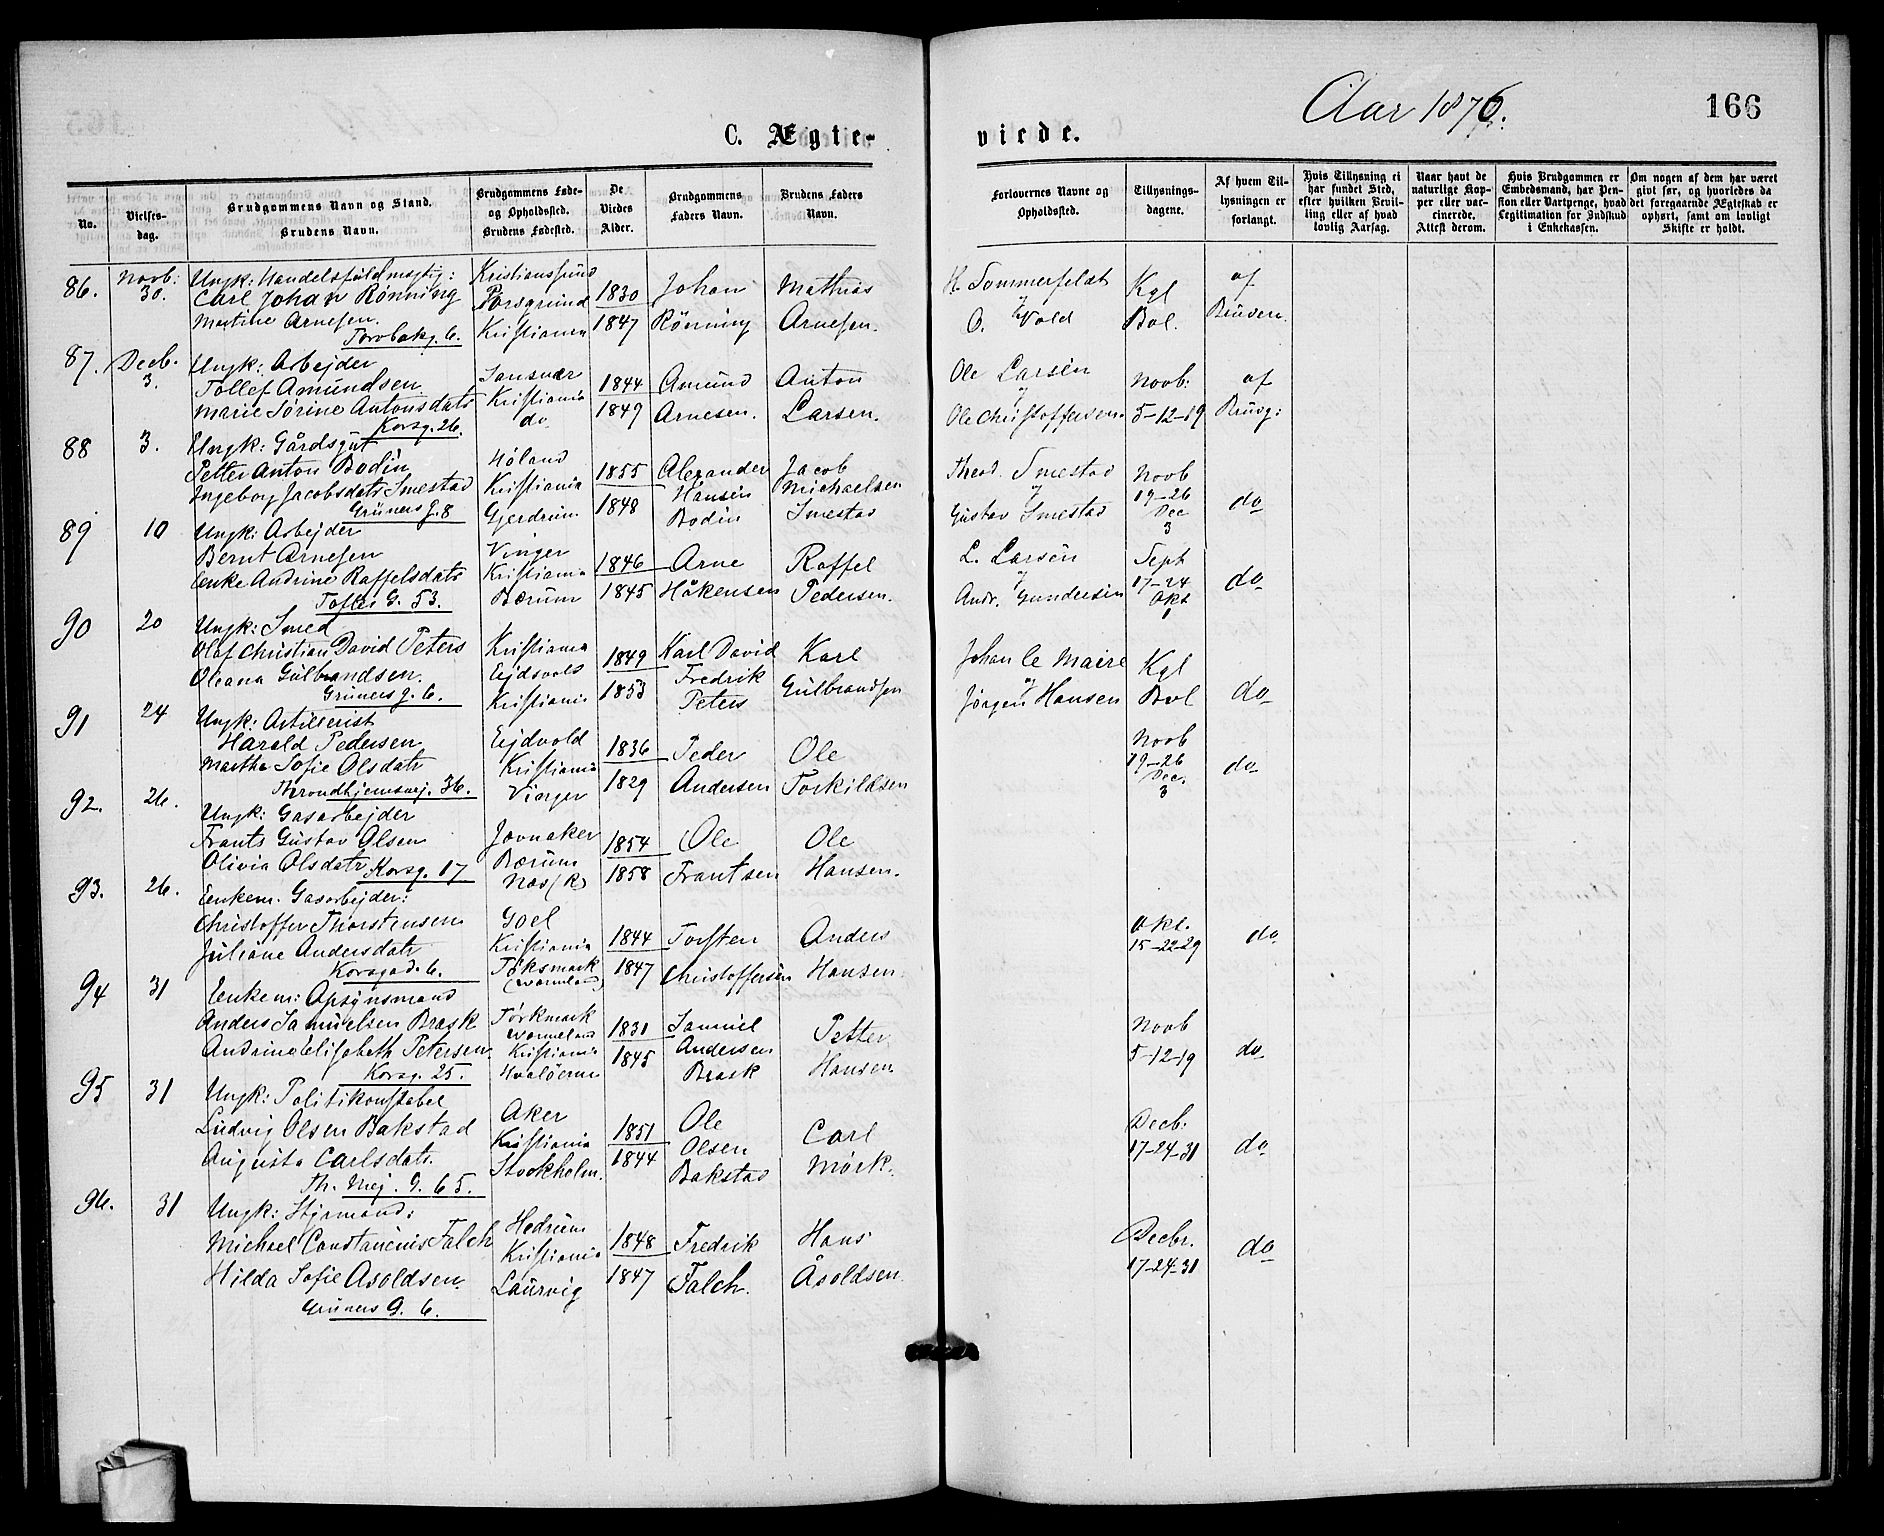 C. Ægte-
viede.
Aar 1876.
166
No.
Vielses-
dag.
Brudgommens Navn og Stand.
Brudens Navn.
Brudgommens Føde-
og Opholdssted.
Brudens Fødested.
De
Viedes
Alder.
Brudgommens
Faders Navn.
Brudens Faders
Navn.
Forlovernes Navne og
Opholdssted.
Tillysnings-
dagene.
Af hvem Til-
lysningen er
forlangt.
Hvis Tillysning ei
har fundet Sted,
efter hvilken Bevil-
ling eller af hvad
lovlig Aarsag.
Naar havt de
naturlige Kop-
per eller vac-
cinerede.
Attest derom.
Hvis Brudgommen er
Embedsmand, har Pen-
sion eller Vartpenge, hvad
Legitimation for Indskud
i Enkekassen.
Om nogen af dem har været
givt før, og hvorledes da
det foregaaende Ægteskab er
ophørt, samt om lovligt
Skifte er holdt.
86. Novb: 30. Ungk: Handelsfuldmægtig: Kristianssund
Carl Johan Rønning Porsgrund 1830 Johan Mathias H. Sommerfeldt Kgl af
Martine Arnesen. Kristiania 1847 Rønning Arnesen. O. Vold Bvl. Bruden.
87. Decb. 3. Ungk: Arbejder
Tollef Amundsen Sansvær 1844 Amund Anton Ole Larsen Novb: af
Marie Sørine Antonsdatr Kristiania do. 1849 Arnesen. Larsen. Ole Christoffersen 5-12-19 Brudg:
Korsg. 26.
88 3. Ungk: Gårdsgut
Petter Anton Bodin Høland 1855 Alexander Jacob Theod. Smestad Novb
Ingeborg Jacobsdatr Smestad Kristiania 1848 Hansen Michaelsen & 19-26
Grüners g. 8 Gjerdrum Bodin Smestad Gustav Smestad Dec 3 do
89 10 Ungk: Arbejder
Bernt Arnesen Vinger 1846 Arne Raffel L. Larsen Sept
Lenke Andrine Raffelsdatr Kristiania 1845 Håkensen Pedersen. & 17-24
Toftes G. 53. Bærum Andr. Gundersen Okt 1 do
90 20 Ungk: Smed
Olaf Christian David Peters Kristiania 1849 Karl David Karl Johan le Maire Kgl
Oleana Gulbrandsen. Ejdsvold 1853 Fredrik Gulbrandsen & Bvl do
Grüners g. 6. Kristiania Peters Jørgen Hansen
91 24 Ungk: Artillerist
Harald Pedersen Ejdvold 1836 Peder Ole Novb
Martha Sofie Olsdatr Kristiania 1829 Andersen Torkildsen 19-26 do
Throndhjemsvej. 36. Vinger Dec. 3
92. 26. Ungk: Gasarbejder
Frants Gustav Olsen Jevnaker 1854 Ole Ole
Olivia Olsdatr Bærum 1858 Frantsen Hansen.
Korsg. 17 Næs (R)
93. 26. Enkem. Gasarbejder:
Christoffer Thorstensen Goel 1844 Torsten Anders Okt.
Juliane Andersdatr Kristiania 1847 Christoffersen Hansen. 15-22-29 do
Korsgad. 6. Töksmark (Wärmland)
94 31 Enkem: Opsynsmand
Anders Samuelsen Brask Törkmark Wermland 1831 Samuel Petter Novb
Andrine Elisabeth Petersen. Kristiania 1845 Andersen Hansen 5-12-19 do
Korsg. 25. Hvaløerne Brask
95 31 Ungk: Politikonstabel
Ludvig Olsen Bakstad Aker 1851 Ole Carl Decb:
Augusta Carlsdatr. Kristiania 1844 Olsen Mörk. 17-24-31 do
Th. Mej. G. 65. Stockholm. Bakstad
96. 31 Ungk: Styrmand:
Michael Constancius Falch Hedrum 1848 Fredrik Hans Decbr.
Hilda Sofie Asoldsen. Kristiania 1847 Falch. Åsoldsen. 17-24-31 do
Grüners G. 6. Laurvig